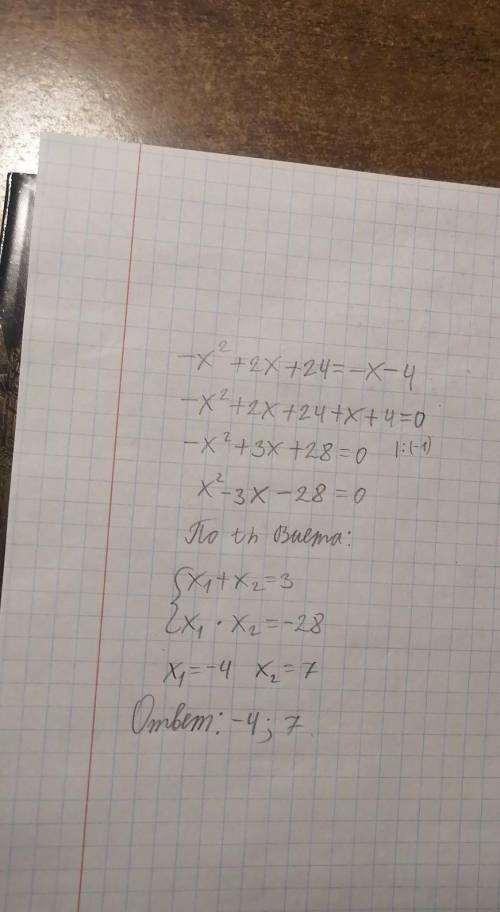 -x²+2x+24=-x-4
-x²+2x+24+x+4=0
-x²+3x+28=0 |:(-1)
x²-3x-28=0
По th Виета:
{x₁+x₂=3
{x₁·x₂=-28
x₁=-4 x₂=7
Ответ: -4; 7